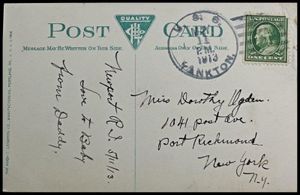 POST CARD
QUALITY
MESSAGE MAY BE WRITTEN ON THIS SIDE.
U.S.S.
11
PM
1913
YANKTON.
ONE CENT
Newport R.I. 5/11/13
Love to Baby
from Daddy.
Miss Dorothy Ogden.
1041 Post ave.
Port Richmond
New York
N.Y.